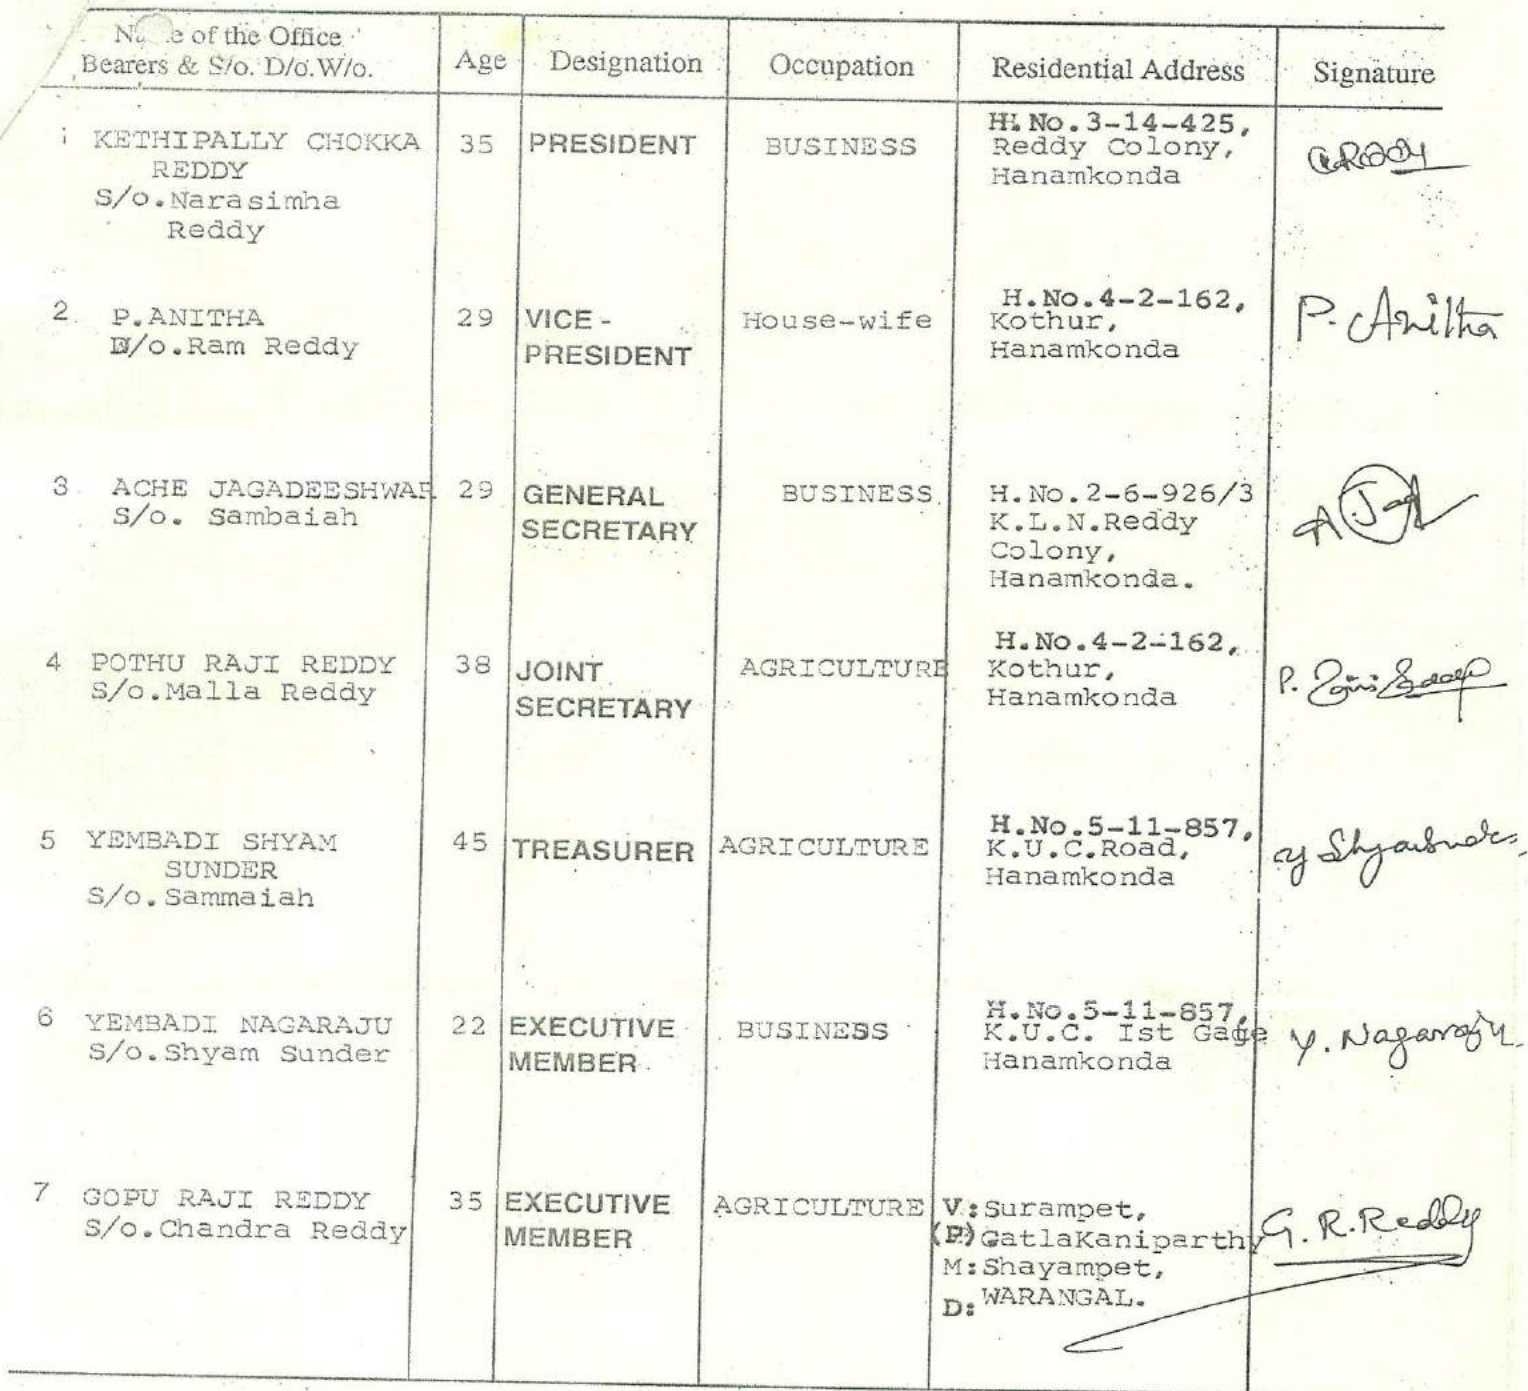 Name of the Office
Bearers & S/o. D/o.W/o.
Age
Designation
Occupation
Residential Address
Signature
1 KETHIPALLY CHOKKA
REDDY
S/o.Narasimha
Reddy
35
PRESIDENT
BUSINESS
H.No.3-14-425,
Reddy Colony,
Hanamkonda
2. P.ANITHA
D/o.Ram Reddy
29
VICE -
PRESIDENT
House-wife
H.No.4-2-162,
Kothur,
Hanamkonda
P. Anitha
3. ACHE JAGADEESHWAR
S/o. Sambaiah
29
GENERAL
SECRETARY
BUSINESS
H.No.2-6-926/3
K.L.N.Reddy
Colony,
Hanamkonda.
4 POTHU RAJI REDDY
S/o.Malla Reddy
38
JOINT
SECRETARY
AGRICULTURE
H.No.4-2-162,
Kothur,
Hanamkonda
5 YEMBADI SHYAM
SUNDER
S/o.Sammaiah
45
TREASURER
AGRICULTURE
H.No.5-11-857,
K.U.C.Road,
Hanamkonda
6 YEMBADI NAGARAJU
S/o.Shyam Sunder
22
EXECUTIVE
MEMBER
BUSINESS
H.No.5-11-857,
K.U.C. Ist Gage
Hanamkonda
Y. Nagaraju
7 GOPU RAJI REDDY
S/o.Chandra Reddy
35
EXECUTIVE
MEMBER
AGRICULTURE
V:Surampet,
(P)GatlaKaniparthy
M:Shayampet,
D:WARANGAL.
G. R. Reddy